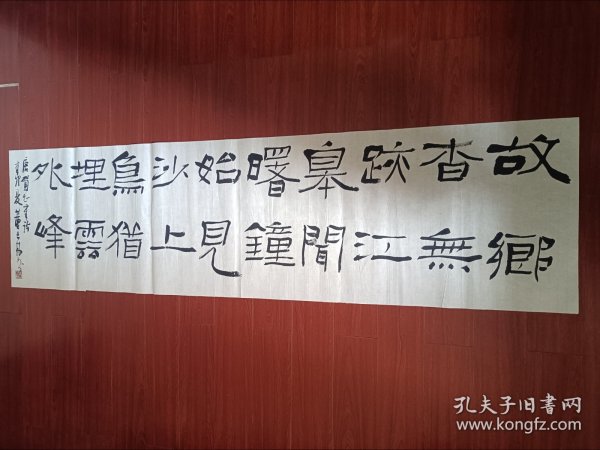 故鄉
杳無
跡江
皋聞
曙鐘
始見
沙上
鳥猶
埋雲
外峰
孔夫子旧书网
www.kongfz.com